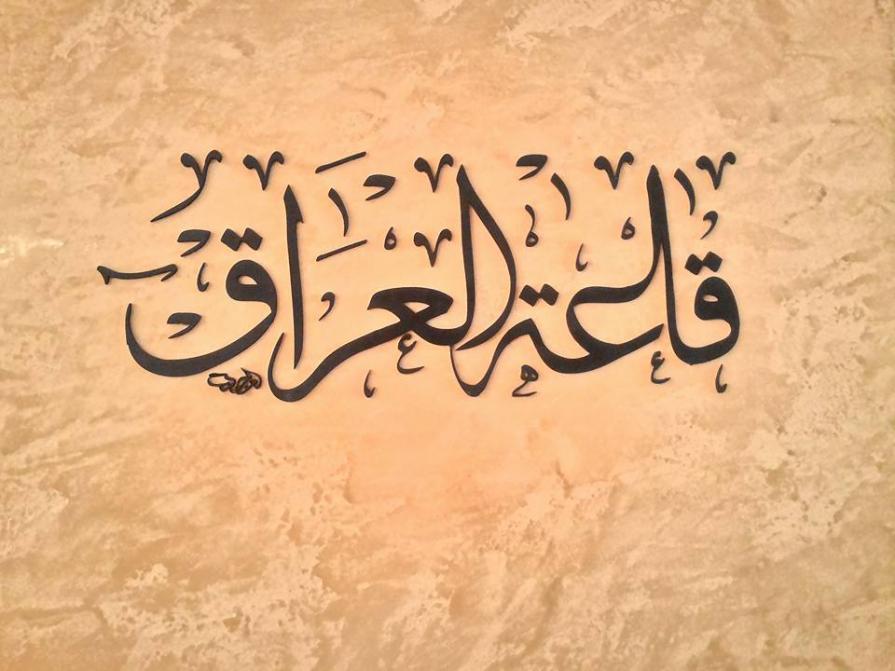 قاعة العراق